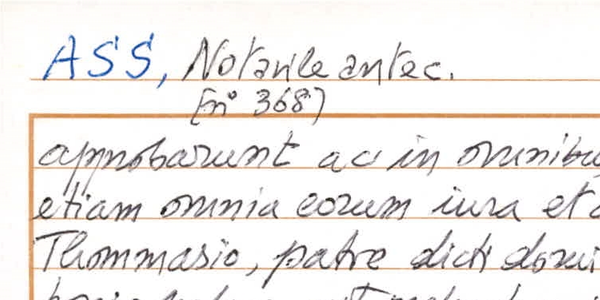 ASS, Notarile antec.
[n° 368]
approbarunt ac in omnibu
etiam omnia eorum iura et a
Thommasio, patre dicti domi